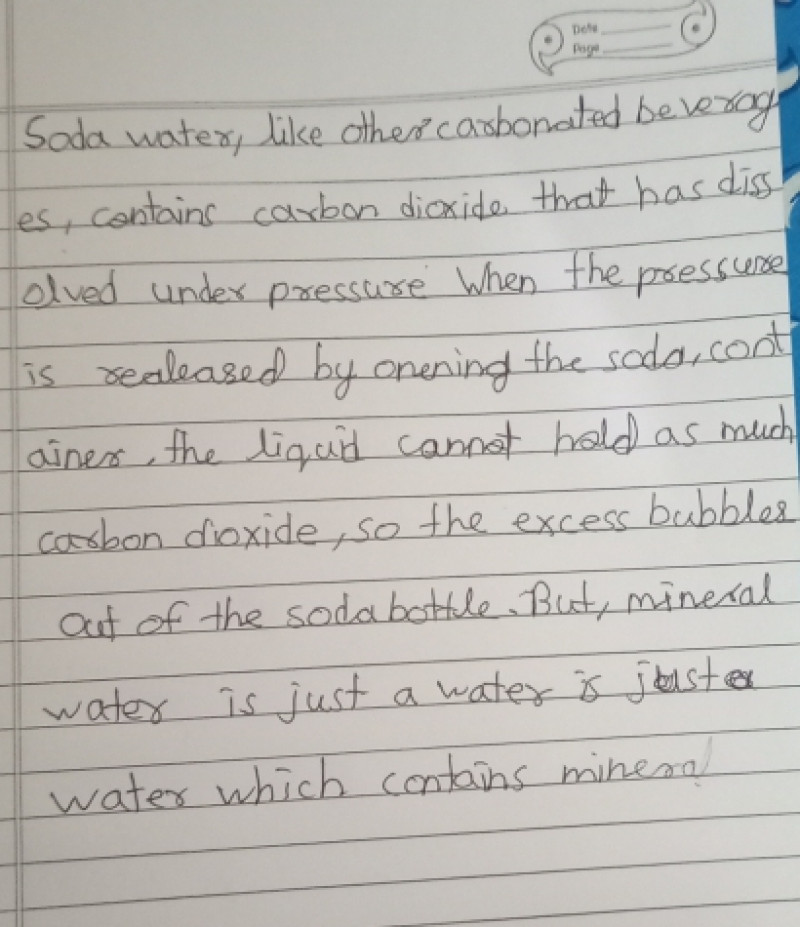 Date
Page
Soda water, like other carbonated beverag
es, contains carbon dioxide that has diss
olved under pressure When the pressure
is realeased by onening the soda, cont
ainer, the liquid cannot hold as much
carbon dioxide, so the excess bubbles
out of the soda bottle. But, mineral
water is just a water is just a
water which contains mineral